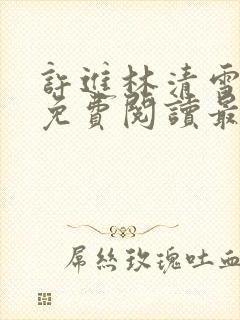 許進林清雪
免費閱讀最
屌絲玫瑰吐血